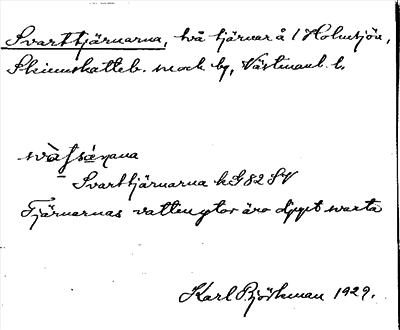 Svarttjärnarna, två tjärnar å 1 Holmsjön,
Skinnskatteb. sock by, Västmanl. l.
Svarttjärnarna kG82SV
Tjärnarnas vattenytor äro djupt svarta
Karl Björkman 1929.